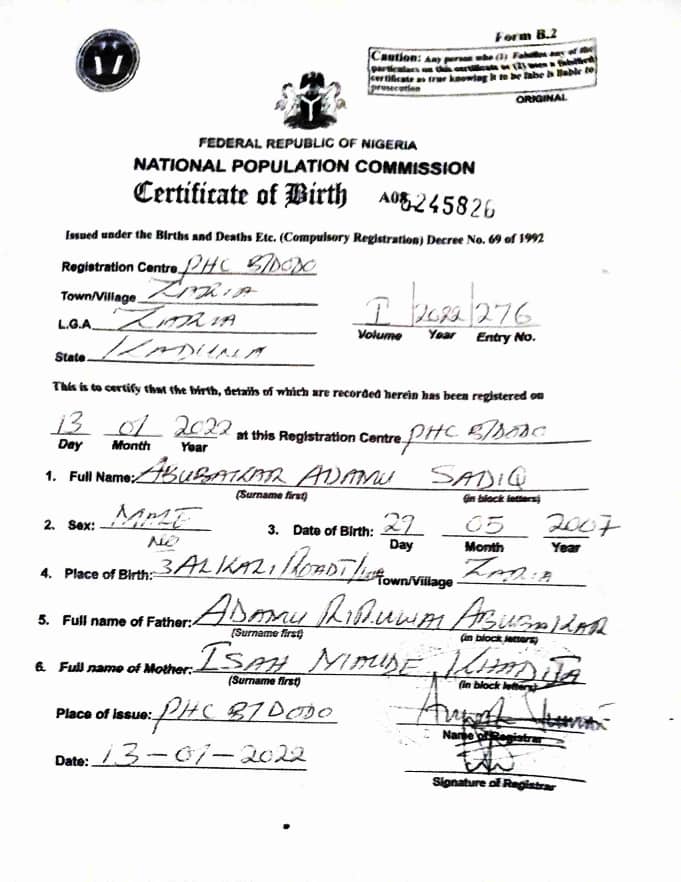 Form B.2
Caution: Any person who (1) Falsifies any of the
particulars on this certificate or (2) uses a falsified
certificate as true knowing it to be false is liable to
prosecution
ORIGINAL
FEDERAL REPUBLIC OF NIGERIA
NATIONAL POPULATION COMMISSION
Certificate of Birth A08 6245826
Issued under the Births and Deaths Etc. (Compulsory Registration) Decree No. 69 of 1992
Registration Centre PHC B/DODO
Town/Village ZARIA
L.G.A ZARIA
I 2022 276
Volume Year Entry No.
State KADUNA
This is to certify that the birth, details of which are recorded herein has been registered on
13 01 2022 at this Registration Centre PHC B/DODO
Day Month Year
1. Full Name: ABUBAKAR ADAMU SADIQ
(Surname first) (in block letters)
2. Sex: MALE 3. Date of Birth: 29 05 2007
Day Month Year
4. Place of Birth: Town/Village ZARIA
5. Full name of Father: ADAMU ABUBAKAR
(Surname first) (in block letters)
6. Full name of Mother: ISAH KHADIJA
(Surname first) (in block letters)
Place of Issue: PHC B/DODO
Name of Registrar
Date: 13-01-2022
Signature of Registrar